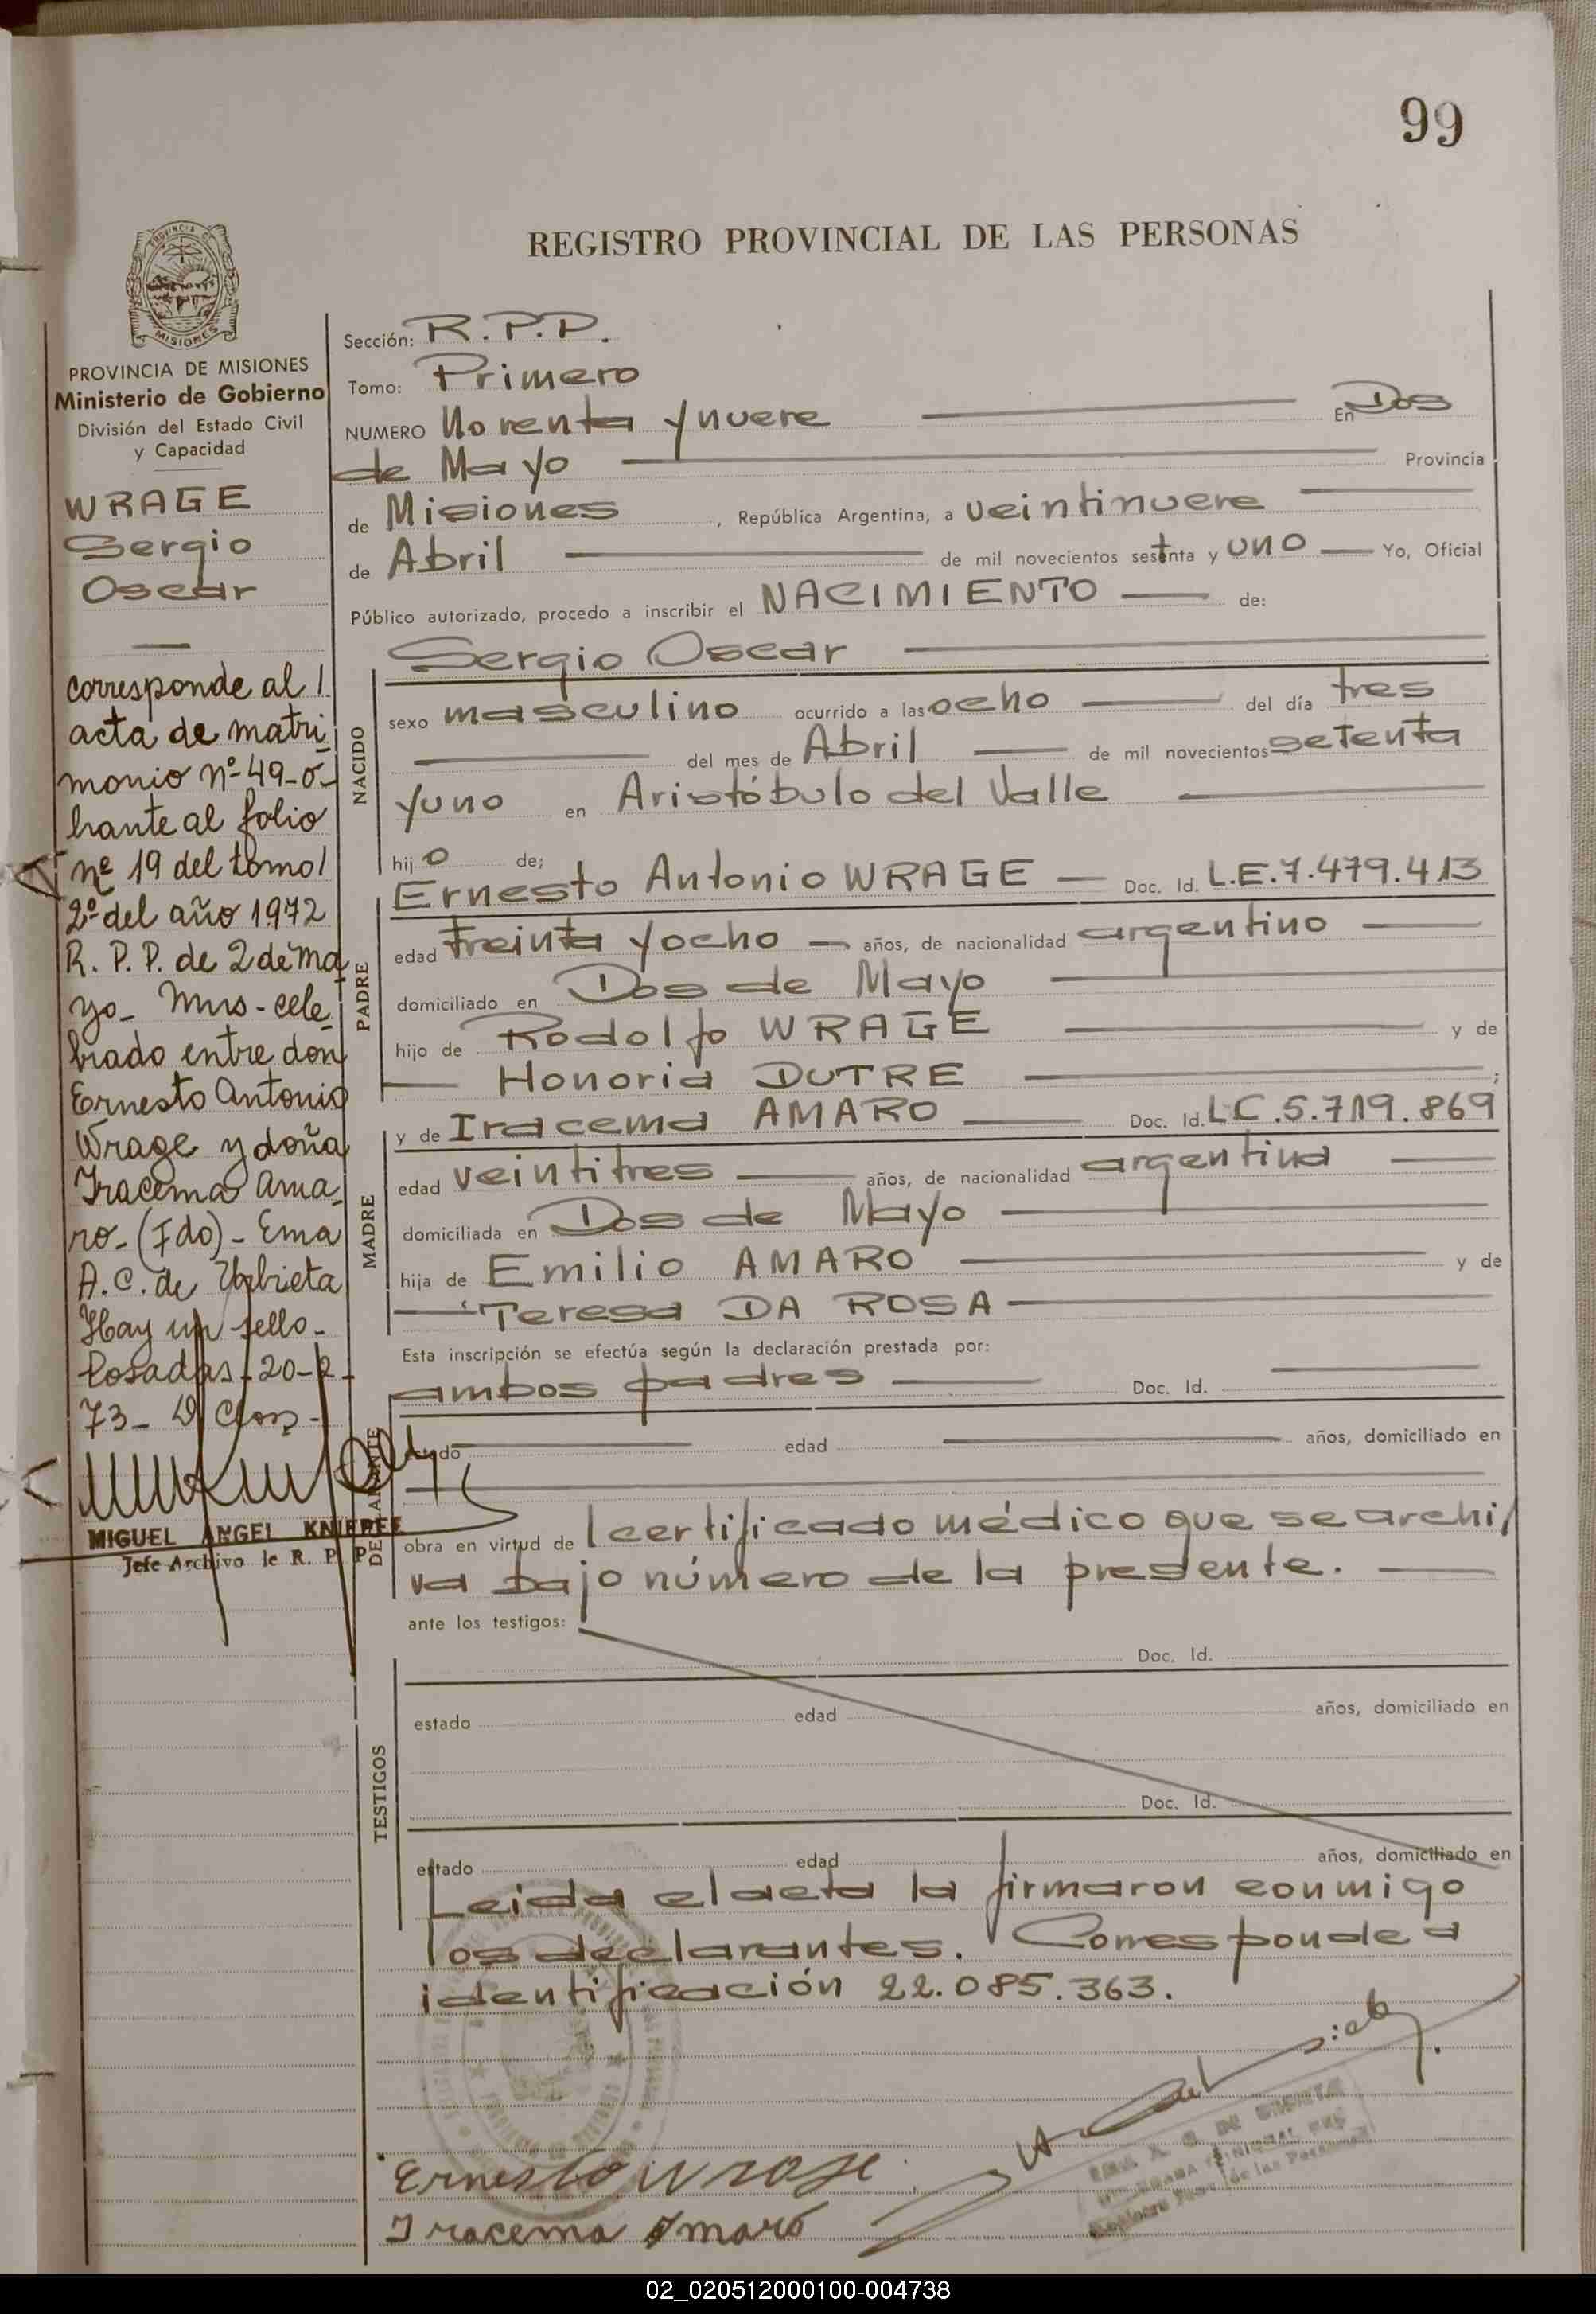 99
REGISTRO PROVINCIAL DE LAS PERSONAS
PROVINCIA DE MISIONES
Ministerio de Gobierno
División del Estado Civil
y Capacidad
WRAGE
Sergio
Oscar
corresponde al 1
acta de matri
monio nº 49-o-
brante al folio
nº 19 del tomo 1
2º del año 1972
R. P. P. de 2 de ma
yo- Mns-cele
brado entre don
Ernesto Antonio
Wrage y doña
Iracema Ama
ro-(Fdo)- Ema
A. C. de
Hay un sello-
Posadas-20-2-
73-
MIGUEL ANGEL KNIEPEE
Jefe Archivo de R. P. P.
Sección: R.P.P.
Tomo: Primero
NUMERO Noventa y nueve En Dos
de Mayo Provincia
de Misiones, República Argentina, a veintinueve
de Abril de mil novecientos setenta y uno Yo, Oficial
Público autorizado, procedo a inscribir el NACIMIENTO de:
Sergio Oscar
NACIDO
sexo masculino ocurrido a las ocho del día tres
del mes de Abril de mil novecientos setenta
y uno en Aristóbulo del Valle
hijo de;
Ernesto Antonio WRAGE Doc. Id. L.E.7.479.413
PADRE
edad treinta y ocho años, de nacionalidad argentino
domiciliado en Dos de Mayo
hijo de Rodolfo WRAGE y de
Honoria DUTRE ;
y de Iracema AMARO Doc. Id. LC.5.719.869
MADRE
edad veintitres años, de nacionalidad argentina
domiciliada en Dos de Mayo
hija de Emilio AMARO y de
Teresa DA ROSA
Esta inscripción se efectúa según la declaración prestada por:
ambos padres Doc. Id.
DECLARANTE
estado edad años, domiciliado en
obra en virtud de l certificado médico que se archi
va bajo número de la presente.
ante los testigos:
Doc. Id.
TESTIGOS
estado edad años, domiciliado en
Doc. Id.
estado edad años, domiciliado en
Leida el acta la firmaron conmigo
los declarantes. Corresponde a
identificación 22.085.363.
Ernesto Wrage
Iracema Amaro
02_020512000100-004738